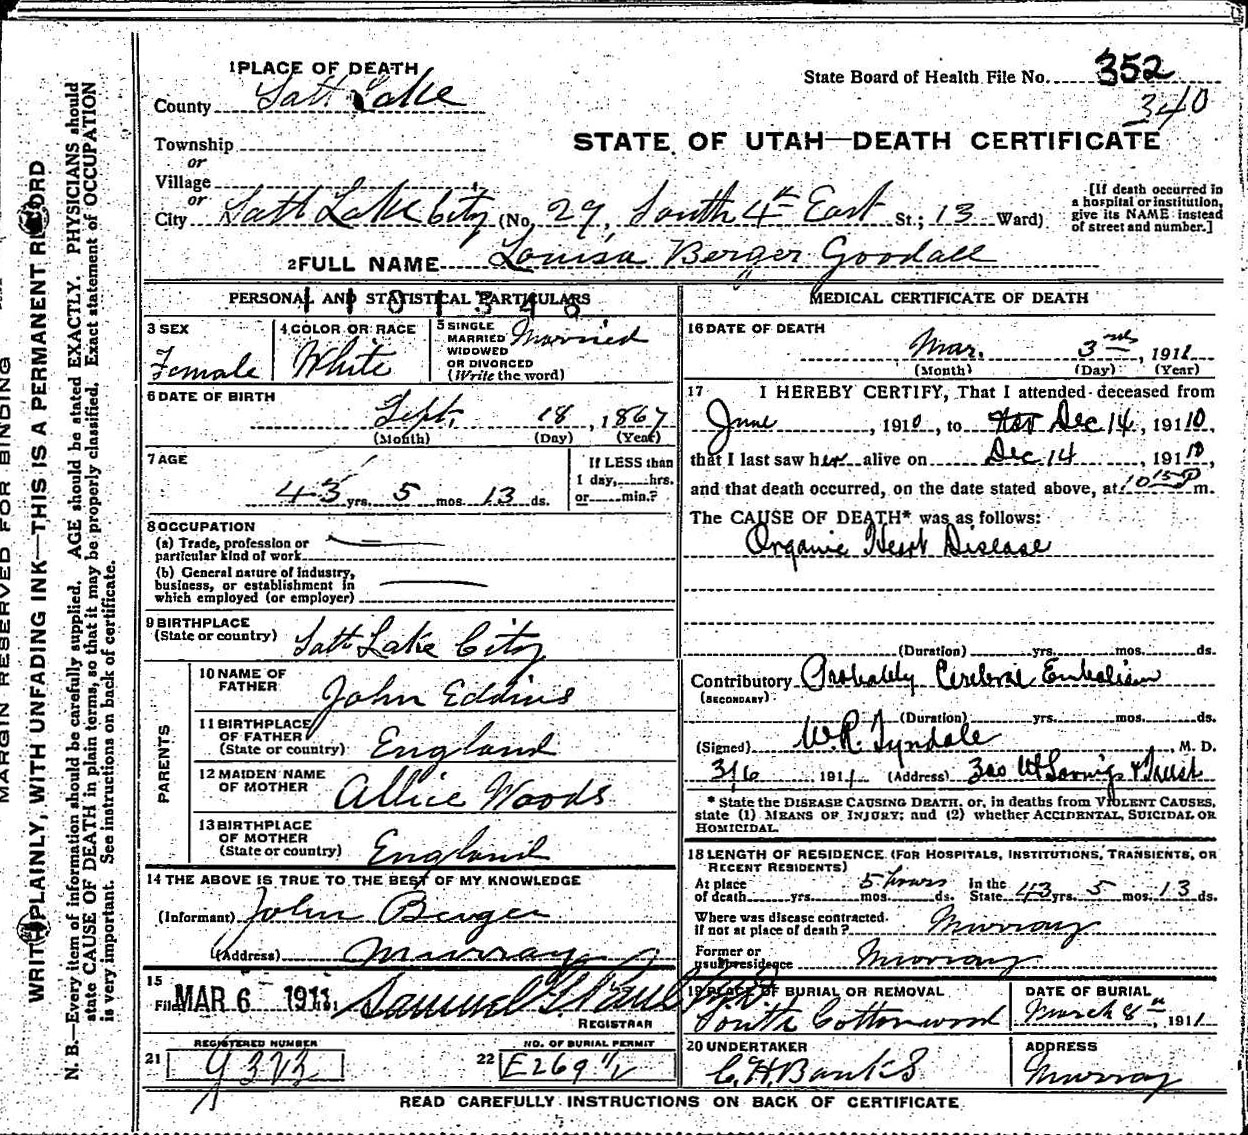 1 PLACE OF DEATH
County Salt Lake
State Board of Health File No. 352
340
STATE OF UTAH—DEATH CERTIFICATE
Township
or
Village
or
City Salt Lake City (No. 29, South 4th East St.; 13 Ward)
[If death occurred in a hospital or institution, give its NAME instead of street and number.]
2 FULL NAME Louisa Berger Goodall
PERSONAL AND STATISTICAL PARTICULARS
1101348
3 SEX
Female
4 COLOR OR RACE
White
5 SINGLE
MARRIED
WIDOWED
OR DIVORCED
(Write the word)
Married
6 DATE OF BIRTH
Sept. 18, 1867
(Month) (Day) (Year)
7 AGE
43 yrs. 5 mos. 13 ds.
If LESS than
1 day, hrs.
or min.?
8 OCCUPATION
(a) Trade, profession or
particular kind of work
(b) General nature of industry,
business, or establishment in
which employed (or employer)
9 BIRTHPLACE
(State or country) Salt Lake City
PARENTS
10 NAME OF
FATHER John Eddins
11 BIRTHPLACE
OF FATHER
(State or country) England
12 MAIDEN NAME
OF MOTHER Allice Woods
13 BIRTHPLACE
OF MOTHER
(State or country) England
14 THE ABOVE IS TRUE TO THE BEST OF MY KNOWLEDGE
(Informant) John Berger
(Address) Murray
15
Filed MAR 6 - 1911, Samuel G. Paul
REGISTRAR
21 REGISTERED NUMBER
22 NO. OF BURIAL PERMIT
MEDICAL CERTIFICATE OF DEATH
16 DATE OF DEATH
Mar. 3rd, 1911
(Month) (Day) (Year)
17 I HEREBY CERTIFY, That I attended deceased from
June, 1910, to Dec 14, 1910,
that I last saw her alive on Dec 14, 1910,
and that death occurred, on the date stated above, at 10 15 P m.
The CAUSE OF DEATH* was as follows:
Organic Heart Disease
(Duration) yrs. mos. ds.
Contributory Probably Cerebral Embolism
(SECONDARY)
(Duration) yrs. mos. ds.
(Signed) W.R. Tyndale, M. D.
3/6 1911 (Address) 300 W Savings & Trust
* State the DISEASE CAUSING DEATH, or, in deaths from VIOLENT CAUSES,
state (1) MEANS OF INJURY; and (2) whether ACCIDENTAL, SUICIDAL OR
HOMICIDAL.
18 LENGTH OF RESIDENCE (FOR HOSPITALS, INSTITUTIONS, TRANSIENTS, OR
RECENT RESIDENTS)
At place
of death yrs. mos. ds. 5 hours In the
State 43 yrs. 5 mos. 13 ds.
Where was disease contracted
if not at place of death? Murray
Former or
usual residence Murray
19 PLACE OF BURIAL OR REMOVAL
South Cottonwood
DATE OF BURIAL
March 8th, 1911
20 UNDERTAKER
C.H. Banks
ADDRESS
Murray
READ CAREFULLY INSTRUCTIONS ON BACK OF CERTIFICATE
MARGIN RESERVED FOR BINDING
WRITE PLAINLY, WITH UNFADING INK—THIS IS A PERMANENT RECORD
N. B.—Every item of information should be carefully supplied. AGE should be stated EXACTLY. PHYSICIANS should
state CAUSE OF DEATH in plain terms, so that it may be properly classified. Exact statement of OCCUPATION
is very important. See instructions on back of certificate.